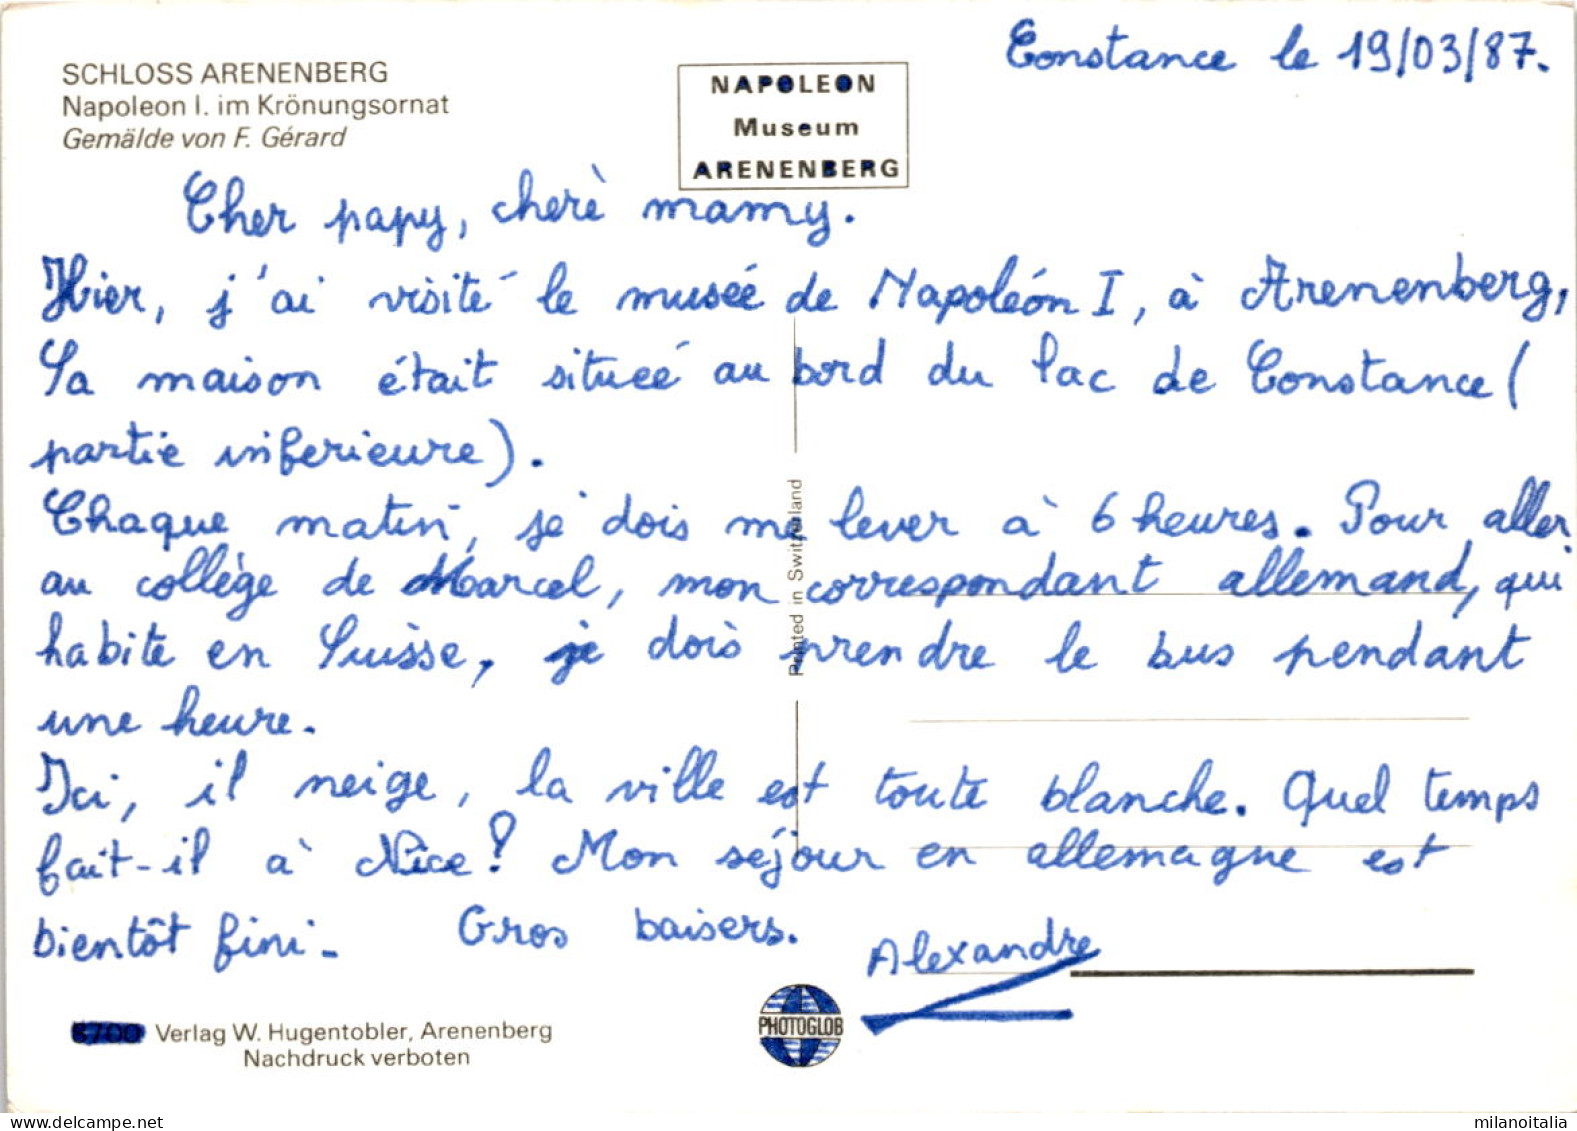 Constance le 19/03/87.
SCHLOSS ARENENBERG
Napoleon I. im Krönungsornat
Gemälde von F. Gérard
NAPOLEON
Museum
ARENENBERG
Cher papy, cherè mamy.
Hier, j'ai visité le musée de Napoléon I, à Arenenberg,
Sa maison était situeé au bord du lac de Constance (
partie inferieure).
Chaque matin, je dois me lever à 6 heures. Pour aller
au collège de Marcel, mon correspondant allemand, qui
habite en Suisse, je dois prendre le bus pendant
une heure.
Ici, il neige, la ville est toute blanche. Quel temps
fait-il à Nice? Mon séjour en allemagne est
bientôt fini. Gros baisers.
Alexandre
Printed in Switzerland
8700 Verlag W. Hugentobler, Arenenberg
Nachdruck verboten
PHOTOGLOB
milanoitalia
www.delcampe.net